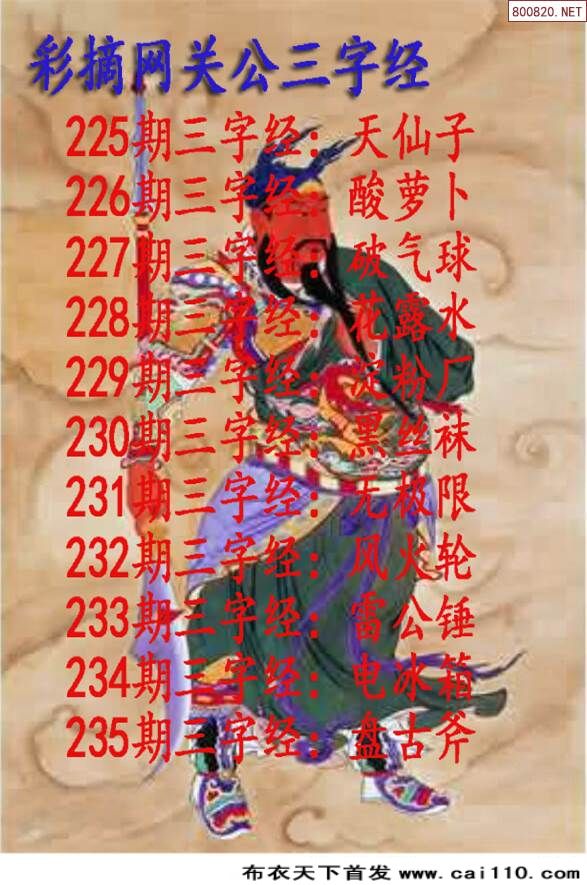 800820.NET
彩摘网关公三字经
225期三字经：天仙子
226期三字经：酸萝卜
227期三字经：破气球
228期三字经：花露水
229期三字经：淀粉厂
230期三字经：黑丝袜
231期三字经：无极限
232期三字经：风火轮
233期三字经：雷公锤
234期三字经：电冰箱
235期三字经：盘古斧
布衣天下首发 www.cai110.com